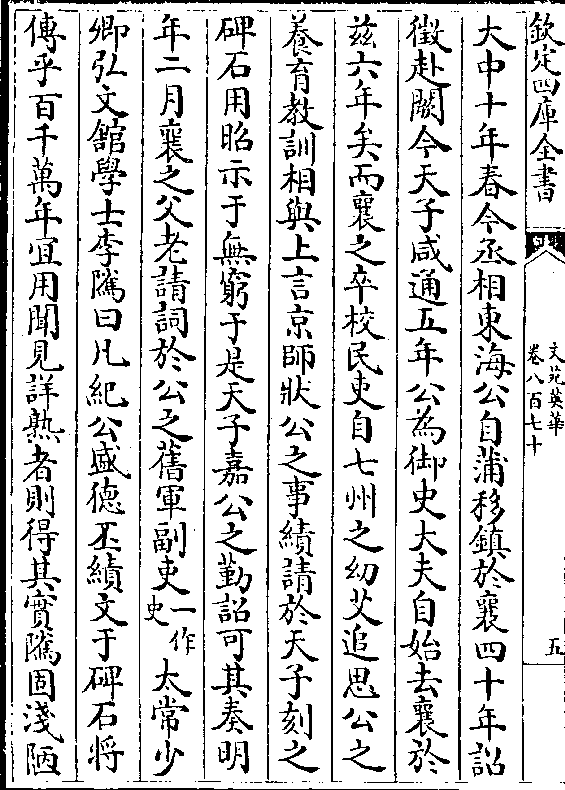 欽定四庫全書
文苑英華
卷八百七十
五
大中十年春今丞相東海公自蒲移鎮於襄四十年詔
徵赴闕今天子咸通五年公為御史大夫自始去襄於
兹六年矣而襄之卒校民吏自七州之幼艾追思公之
養育教訓相與上言京師狀公之事績請於天子刻之
碑石用昭示于無窮于是天子嘉公之勤詔可其奏明
年二月襄之父老請詞於公之舊軍副吏一作史太常少
卿弘文館學士李隲曰凡紀公盛德丕績文于碑石將
傳乎百千萬年宜用聞見詳熟者則得其實隲固淺陋